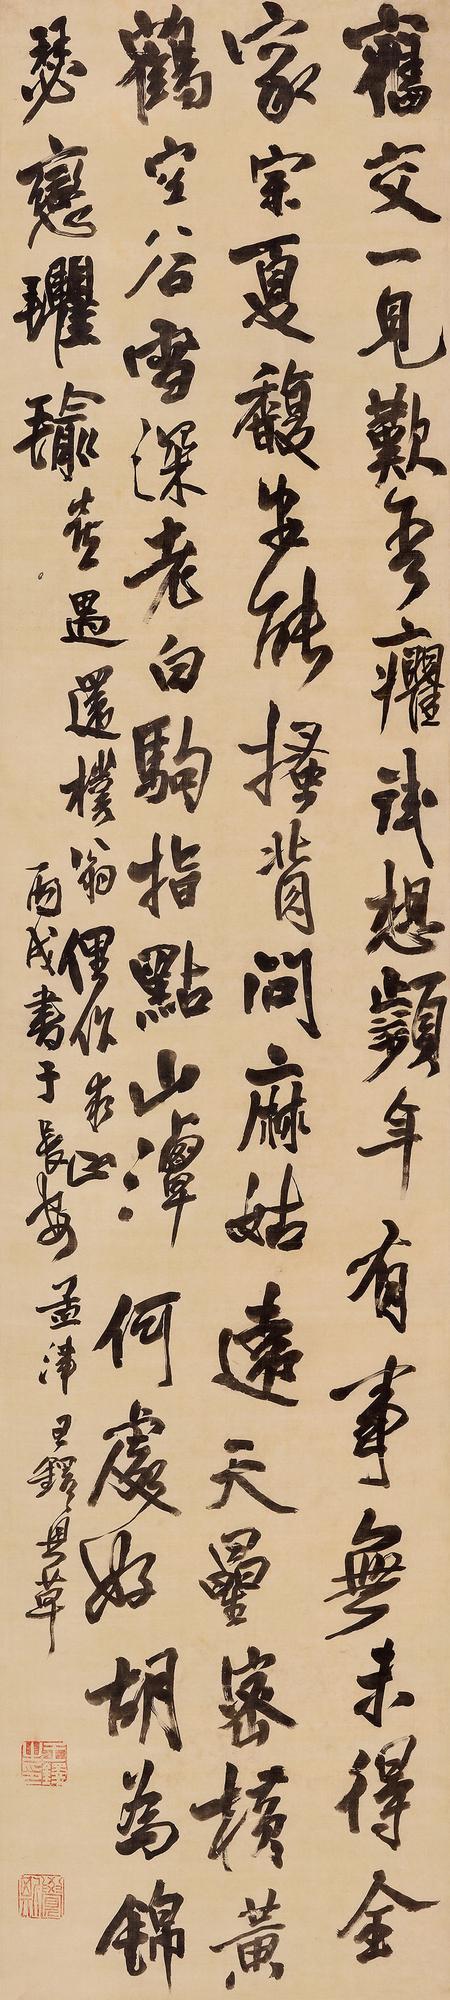 舊交一見歎吾癯試想顰年有事無未得全
家宗夏馥安能搔背問麻姑遠天星密橫黃
鶴空谷雪深老白駒指點山潭何處好胡為錦
瑟戀瓘瑜喜遇還樸翁俚作求正
丙戌書于長安孟津王鐸具草
王鐸之印